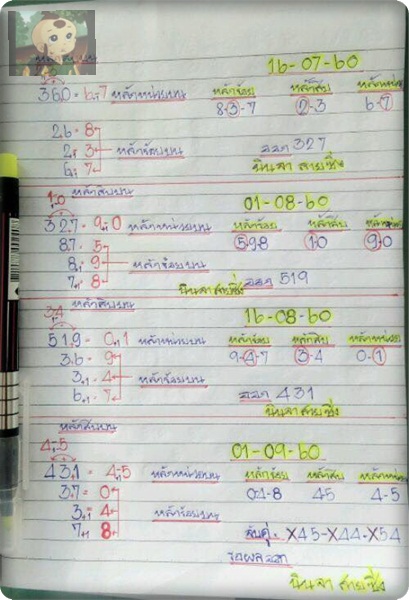 16-07-60
360 = 6,7 หลักหน่วยบน หลักร้อย หลักสิบ หลักหน่วย
8-3-7 2-3 6-7
26 = 8
2,1 3 หลักร้อยบน ออก 327
6,1 7 นินจา สายซิ่ง
หลักสิบบน
1,0 01-08-60
327 = 9,0 หลักหน่วยบน หลักร้อย หลักสิบ หลักหน่วย
87 = 5 5-9-8 1-0 9-0
8,1 = 9 หลักร้อยบน
7,1 = 8 นินจา สายซิ่ง ออก 519
3,4 หลักสิบบน 16-08-60
519 = 0,1 หลักหน่วยบน หลักร้อย หลักสิบ หลักหน่วย
3,6 = 9 9-4-7 3-4 0-1
3,1 = 4 หลักร้อยบน
6,1 = 7 ออก 431
นินจา สายซิ่ง
หลักสิบบน
4,5 01-09-60
431 = 4,5 หลักหน่วยบน หลักร้อย หลักสิบ หลักหน่วย
3,7 = 0 0-4-8 4-5 4-5
3,1 = 4 หลักร้อยบน จับคู่. X45-X44-X54
7,1 8
รอผลออก
นินจา สายซิ่ง